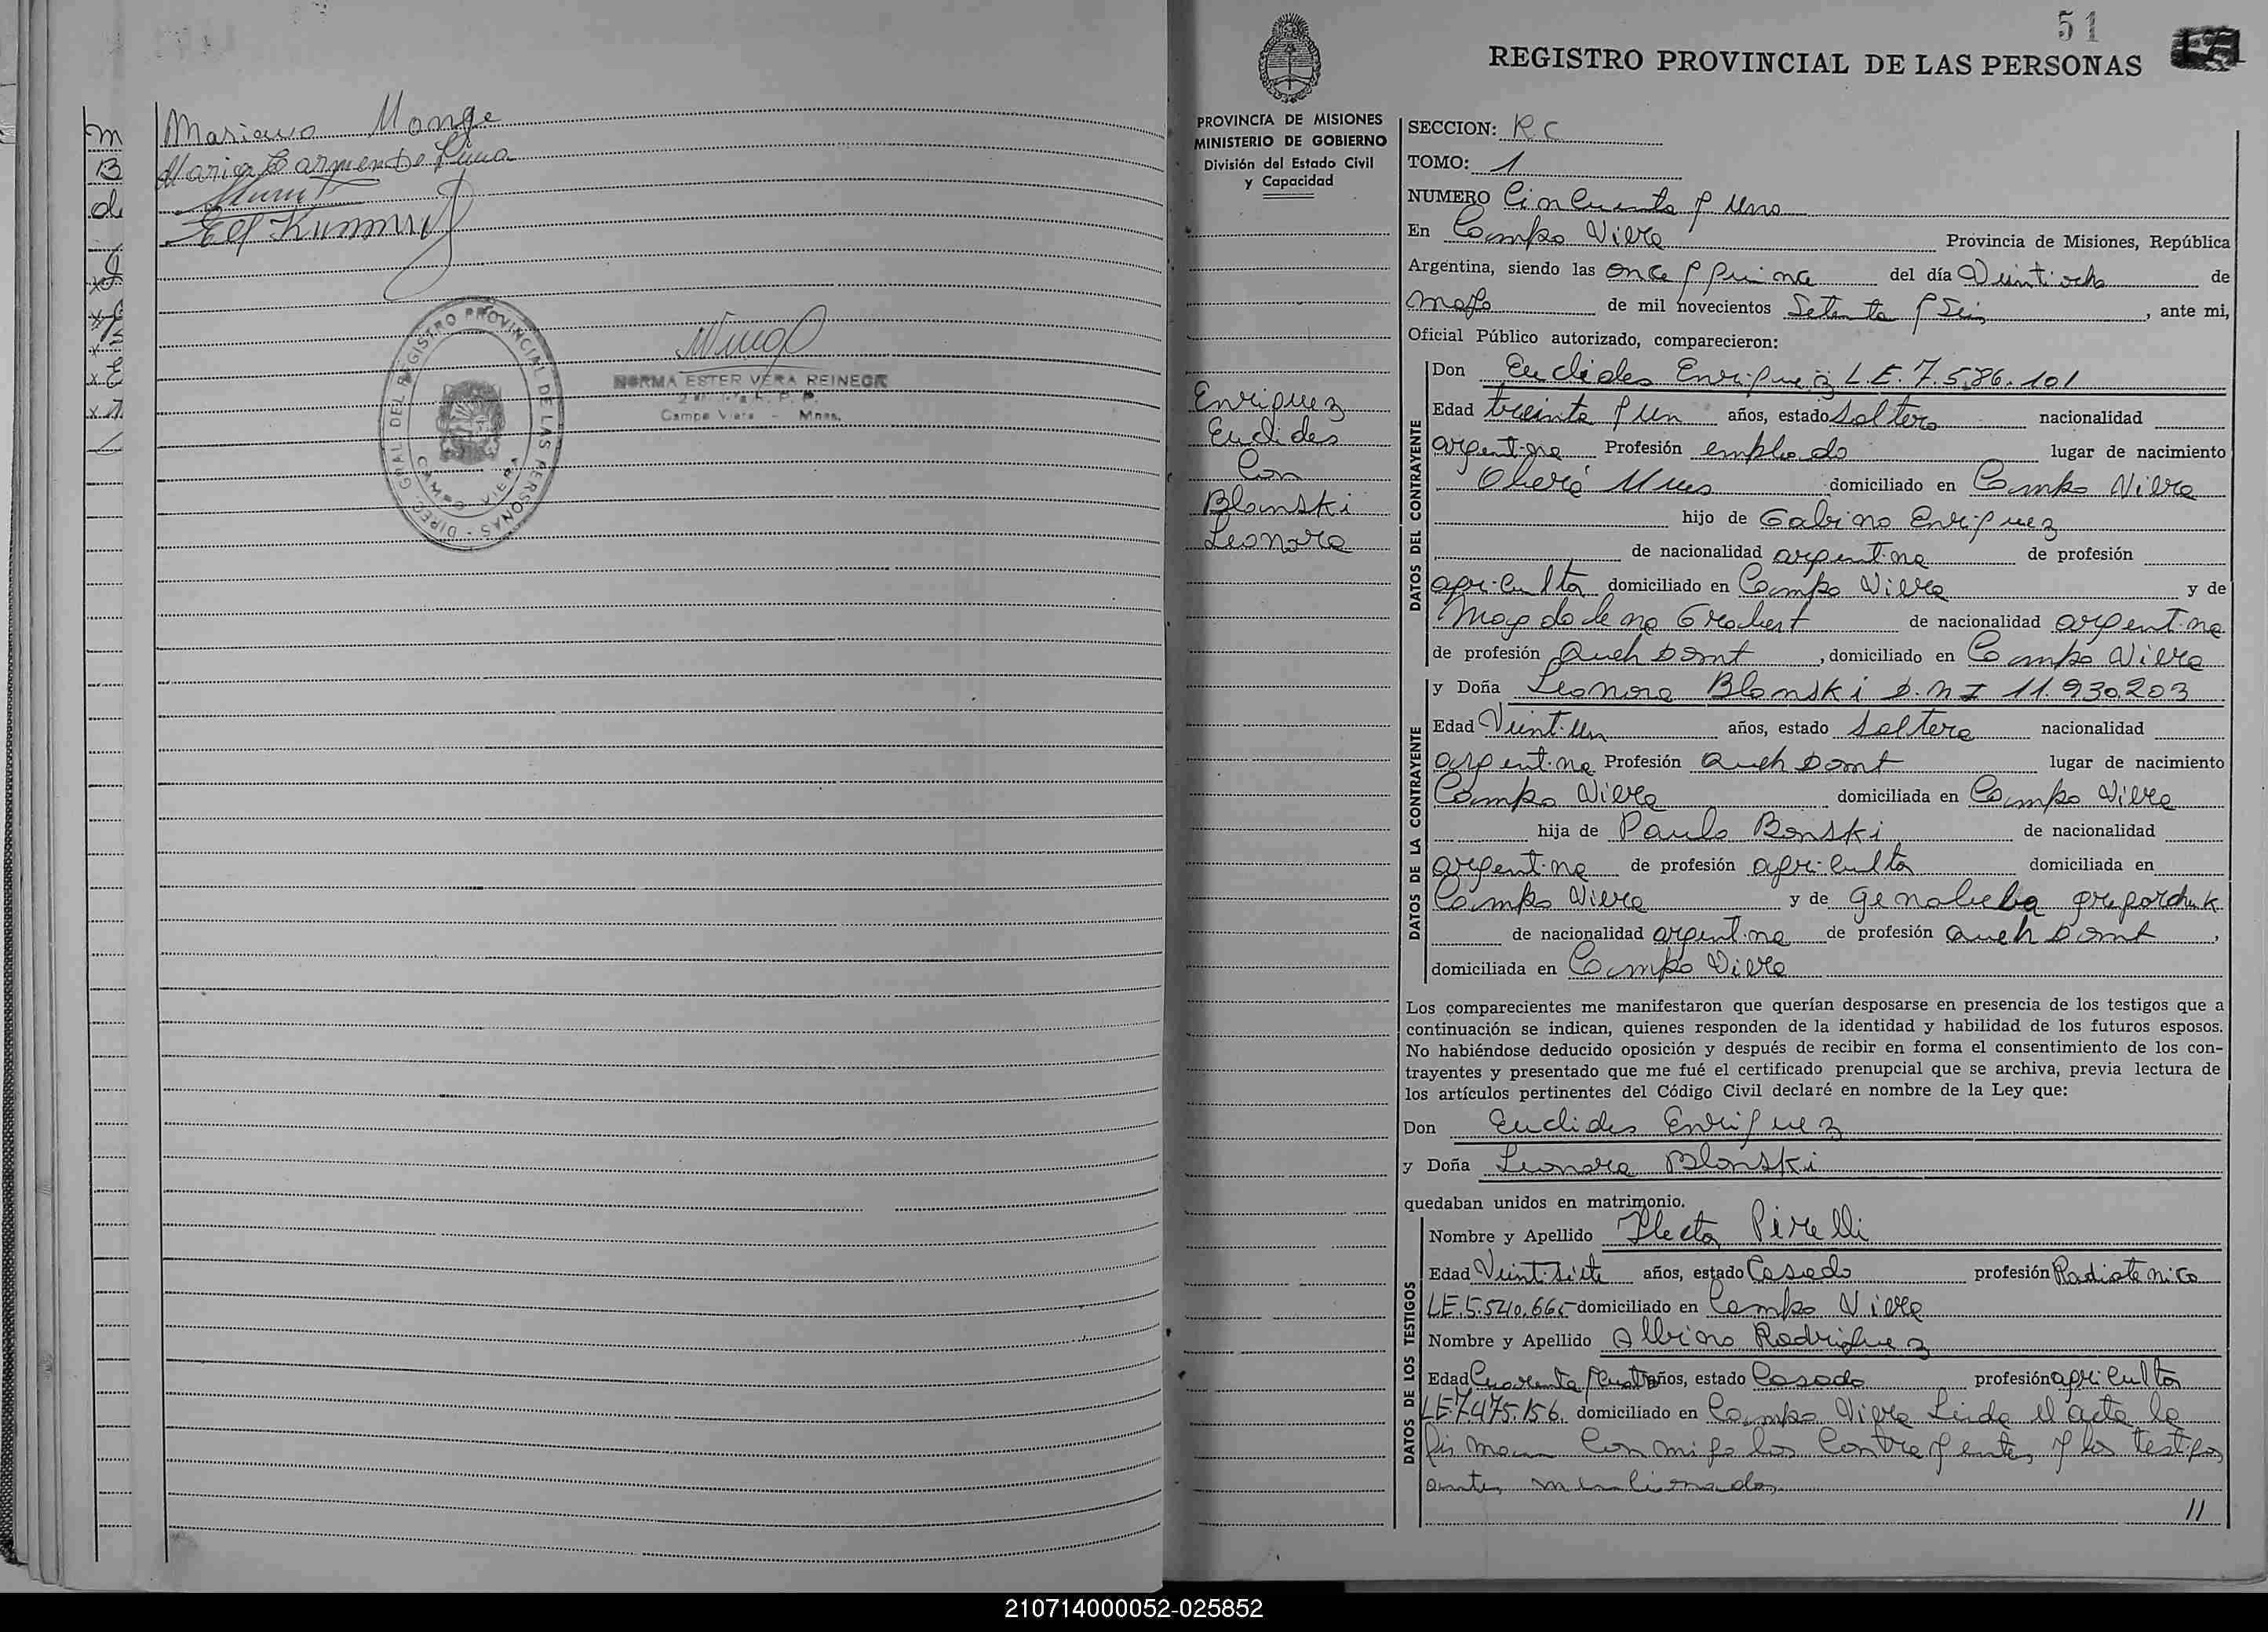 Mariano Monge
Maria Carmen De Lima
DIREC. GRAL. DEL REGISTRO PROVINCIAL DE LAS PERSONAS
CAMPO VIERA
NORMA ESTER VERA REINECK
Campo Viera - Mnes.
51
REGISTRO PROVINCIAL DE LAS PERSONAS
PROVINCIA DE MISIONES
MINISTERIO DE GOBIERNO
División del Estado Civil
y Capacidad
Enriquez
Euclides
Con
Blonski
Leonora
SECCION: R.C
TOMO: 1
NUMERO Cincuenta y Uno
En Campo Viera Provincia de Misiones, República
Argentina, siendo las once y quince del día Veintiocho de
mayo de mil novecientos Setenta y Seis, ante mi,
Oficial Público autorizado, comparecieron:
DATOS DEL CONTRAYENTE
Don Euclides Enriquez L.E. 7.586.101
Edad treinta y un años, estado Soltero nacionalidad
argentina Profesión empleado lugar de nacimiento
Oberá Mnes domiciliado en Campo Viera
hijo de Gabino Enriquez
de nacionalidad argentina de profesión
agricultor domiciliado en Campo Viera y de
Magdalena Grabert de nacionalidad argentina
de profesión Queh Domt, domiciliado en Campo Viera
DATOS DE LA CONTRAYENTE
y Doña Leonora Blonski D.N.I 11.930.203
Edad Veintiun años, estado Soltera nacionalidad
argentina Profesión Queh Domt lugar de nacimiento
Campo Viera domiciliada en Campo Viera
hija de Paulo Bonski de nacionalidad
argentina de profesión agricultor domiciliada en
Campo Viera y de Genobeba gregorchuk
de nacionalidad argentina de profesión Queh Domt,
domiciliada en Campo Viera
Los comparecientes me manifestaron que querían desposarse en presencia de los testigos que a
continuación se indican, quienes responden de la identidad y habilidad de los futuros esposos.
No habiéndose deducido oposición y después de recibir en forma el consentimiento de los con-
trayentes y presentado que me fué el certificado prenupcial que se archiva, previa lectura de
los artículos pertinentes del Código Civil declaré en nombre de la Ley que:
Don Euclides Enriquez
y Doña Leonora Blonski
quedaban unidos en matrimonio.
DATOS DE LOS TESTIGOS
Nombre y Apellido Hector Pirelli
Edad Veintisiete años, estado Casado profesión Radiotecnico
LE.5.540.665 domiciliado en Campo Viera
Nombre y Apellido Albino Rodriguez
Edad Cuarenta y Cuatro años, estado Casado profesión agricultor
LE.7.475.156. domiciliado en Campo Viera Leida el acta la
firman Conmigo los Contrayentes y los testigos
antes mencionados
11
210714000052-025852